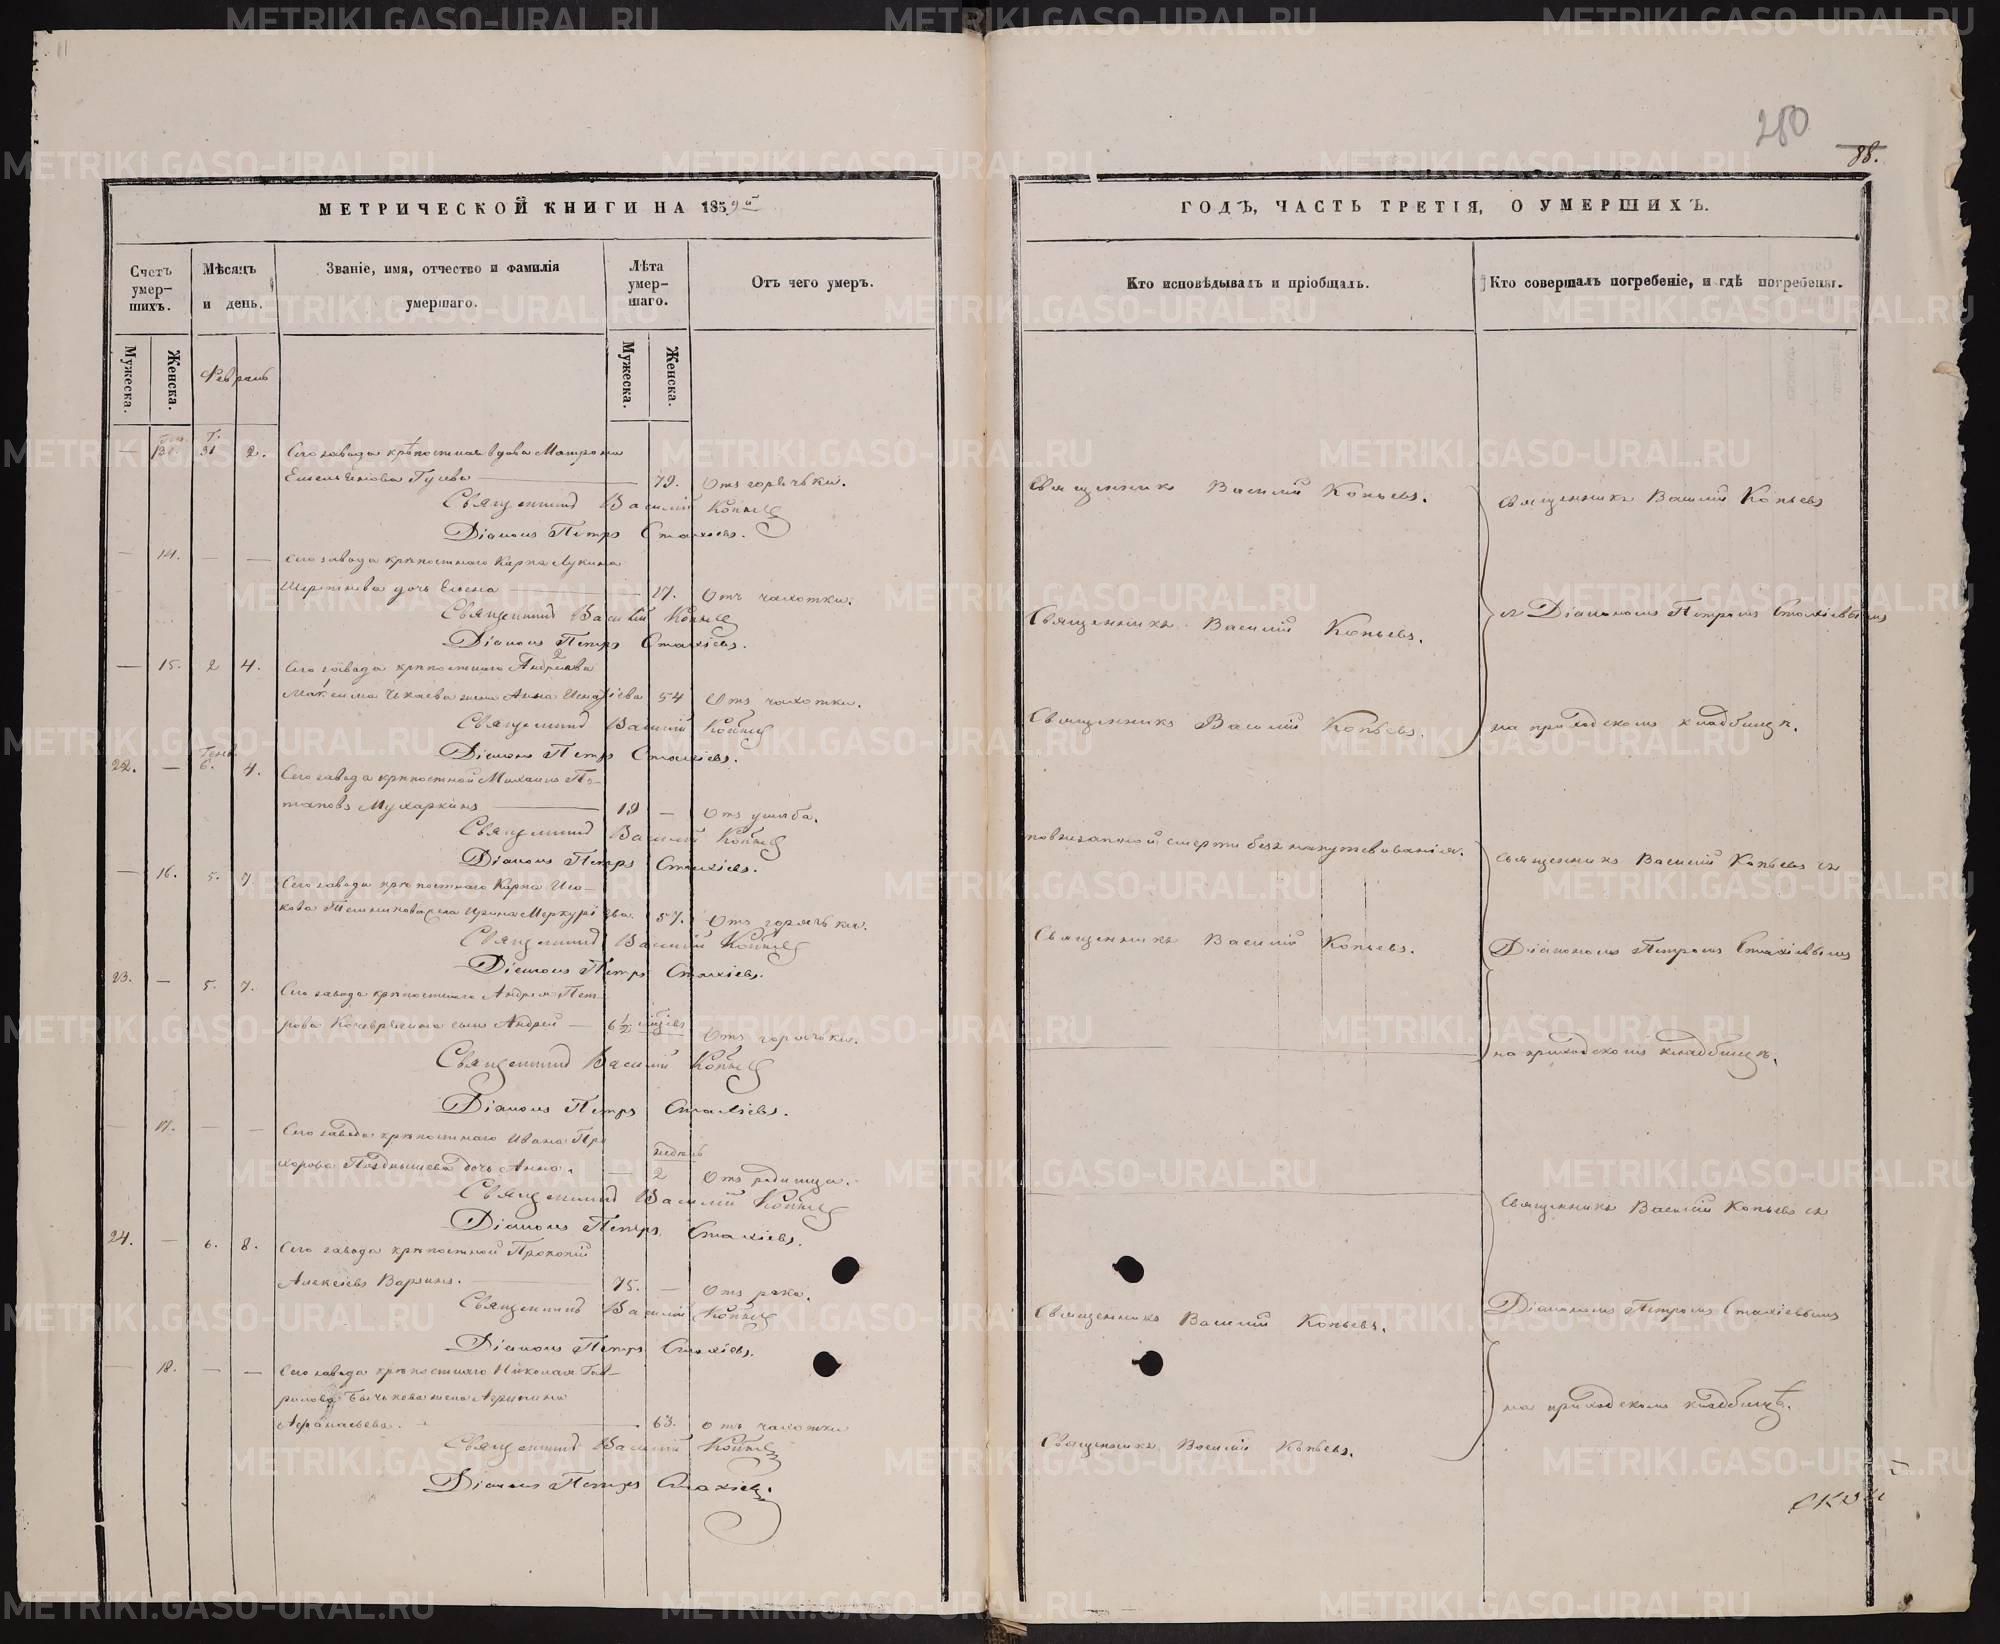 280
88.
МЕТРИЧЕСКОЙ КНИГИ НА 1859й
ГОДЪ, ЧАСТЬ ТРЕТІЯ, О УМЕРШИХЪ.
Счетъ умер-
шихъ.
Мѣсяцъ
и день.
Званіе, имя, отчество и фамилія
умершаго.
Лѣта
умер-
шаго.
Отъ чего умеръ.
Кто исповѣдывалъ и пріобщалъ.
Кто совершалъ погребеніе, и гдѣ погребены.
Мужеска.
Женска.
Февраль
Мужеска.
Женска.
— 13. 31 2. Сего завода крѣпостная вдова Матрона
Емельянова Гусева 79. Отъ горячки.
Священникъ Василій Копьевъ
Діаконъ Петръ Стахіевъ.
Священникъ Василій Копьевъ.
Священникъ Василій Копьевъ
— 14. — — Сего завода крѣпостнаго Карпа Лукина
дочь Елена 17. Отъ чахотки.
Священникъ Василій Копьевъ
Діаконъ Петръ Стахіевъ.
Священникъ Василій Копьевъ.
съ Діакономъ Петромъ Стахіевымъ
— 15. 2 4. Сего завода крѣпостнаго Андреева
Максима жена Анна 54 Отъ чахотки.
Священникъ Василій Копьевъ
Діаконъ Петръ Стахіевъ.
Священникъ Василій Копьевъ.
на приходскомъ кладбищѣ.
22. — 6. 4. Сего завода крѣпостной Михаилъ По-
таповъ Мухаркинъ 19 — Отъ ушиба.
Священникъ Василій Копьевъ
Діаконъ Петръ Стахіевъ.
по внезапной смерти безъ напутствованія.
Священникъ Василій Копьевъ съ
— 16. 5. 7. Сего завода крѣпостнаго Карпа Иса-
кова жена Ирина Меркурьева 57. Отъ горячки.
Священникъ Василій Копьевъ
Діаконъ Петръ Стахіевъ.
Священникъ Василій Копьевъ.
Діакономъ Петромъ Стахіевымъ
23. — 5. 7. Сего завода крѣпостнаго Андрея Пет-
рова сынъ Андрей — 6½ мѣсяцъ Отъ горячки.
Священникъ Василій Копьевъ
Діаконъ Петръ Стахіевъ.
на приходскомъ кладбищѣ.
— 17. — — Сего завода крѣпостнаго Ивана Про
хорова Позднышева дочь Анна. — недѣль 2 Отъ родимца.
Священникъ Василій Копьевъ
Діаконъ Петръ Стахіевъ.
Священникъ Василій Копьевъ съ
24. — 6. 8. Сего завода крѣпостной Прокопій
Алексѣевъ 75. — Отъ рака.
Священникъ Василій Копьевъ
Діаконъ Петръ Стахіевъ.
Священникъ Василій Копьевъ.
Діакономъ Петромъ Стахіевымъ
— 18. — — Сего завода крѣпостнаго Николая Гав-
рилова Бычкова жена Агрипина
Афанасьева. 63. Отъ чахотки
Священникъ Василій Копьевъ
Діаконъ Петръ Стахіевъ.
Священникъ Василій Копьевъ.
на приходскомъ кладбищѣ.
METRIKI.GASO-URAL.RU